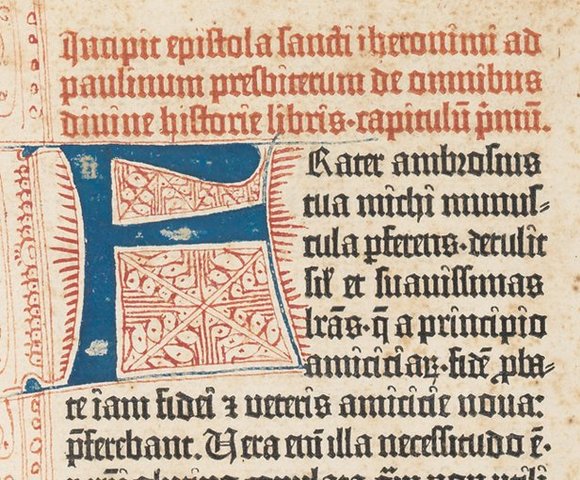 Incipit epistola sancti iheronimi ad
paulinum presbiterum de omnibus
divine historie libris·capitulū p̄mū.
FRater ambrosius
tua michi munus-
cula pferens·detulit
sīl et suavissimas
lr̄as·q̄ a principio
amiciciaꝝ·fidē pba-
te iam fidei ⁊ veteris amicicie nova:
p̄ferebant. Vera em̄ illa necessitudo ē·